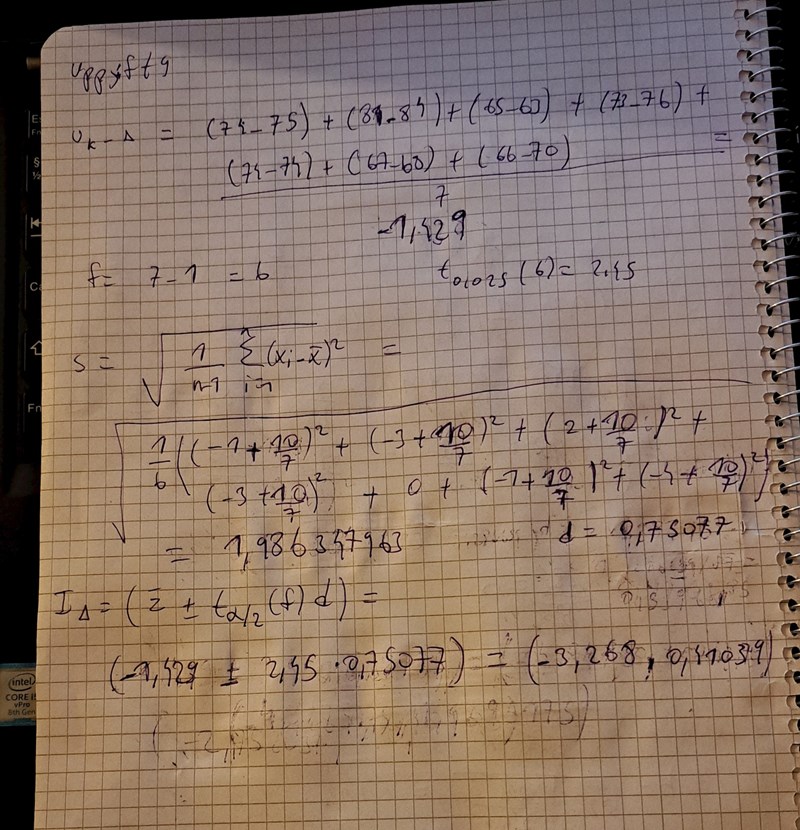 uppgift 9
u_{k-Δ} = (74-75) + (81-84) + (65-63) + (73-76) +
(74-74) + (67-68) + (66-70) =
7
-1,429
f = 7-1 = 6 t_{0,025}(6) = 2,45
s = √(1/(n-1) Σ_{i=1}^{n} (x_i - x̄)²) =
√(1/6 ((-1 + 10/7)² + (-3 + 10/7)² + (2 + 10/7)² +
(-3 + 10/7)² + 0 + (-1 + 10/7)² + (-4 + 10/7)²))
= 1,986347963 d = 0,75077
I_Δ = (z̄ ± t_{α/2}(f) d) =
(-1,429 ± 2,45 · 0,75077) = (-3,268, 0,41039)
intel
CORE i5
vPro
8th Gen